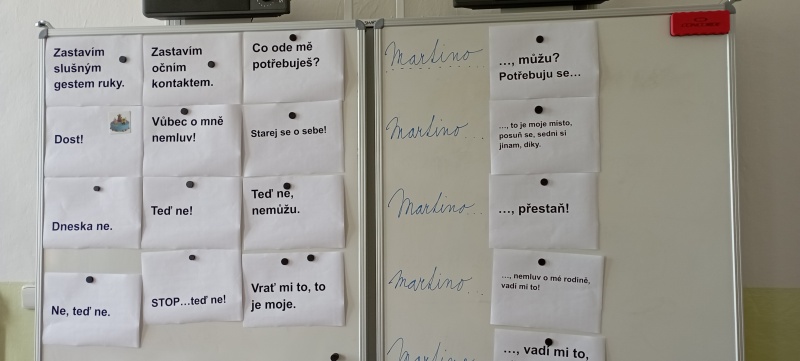 Zastavím
slušným
gestem ruky.
Zastavím
očním
kontaktem.
Co ode mě
potřebuješ?
Dost!
Vůbec o mně
nemluv!
Starej se o sebe!
Dneska ne.
Teď ne!
Teď ne,
nemůžu.
Ne, teď ne.
STOP…teď ne!
Vrať mi to, to
je moje.
Martino
…, můžu?
Potřebuju se…
Martino
…, to je moje místo,
posuň se, sedni si
jinam, díky.
Martino
…, přestaň!
Martino
…, nemluv o mé rodině,
vadí mi to!
Martino
…, vadí mi to,